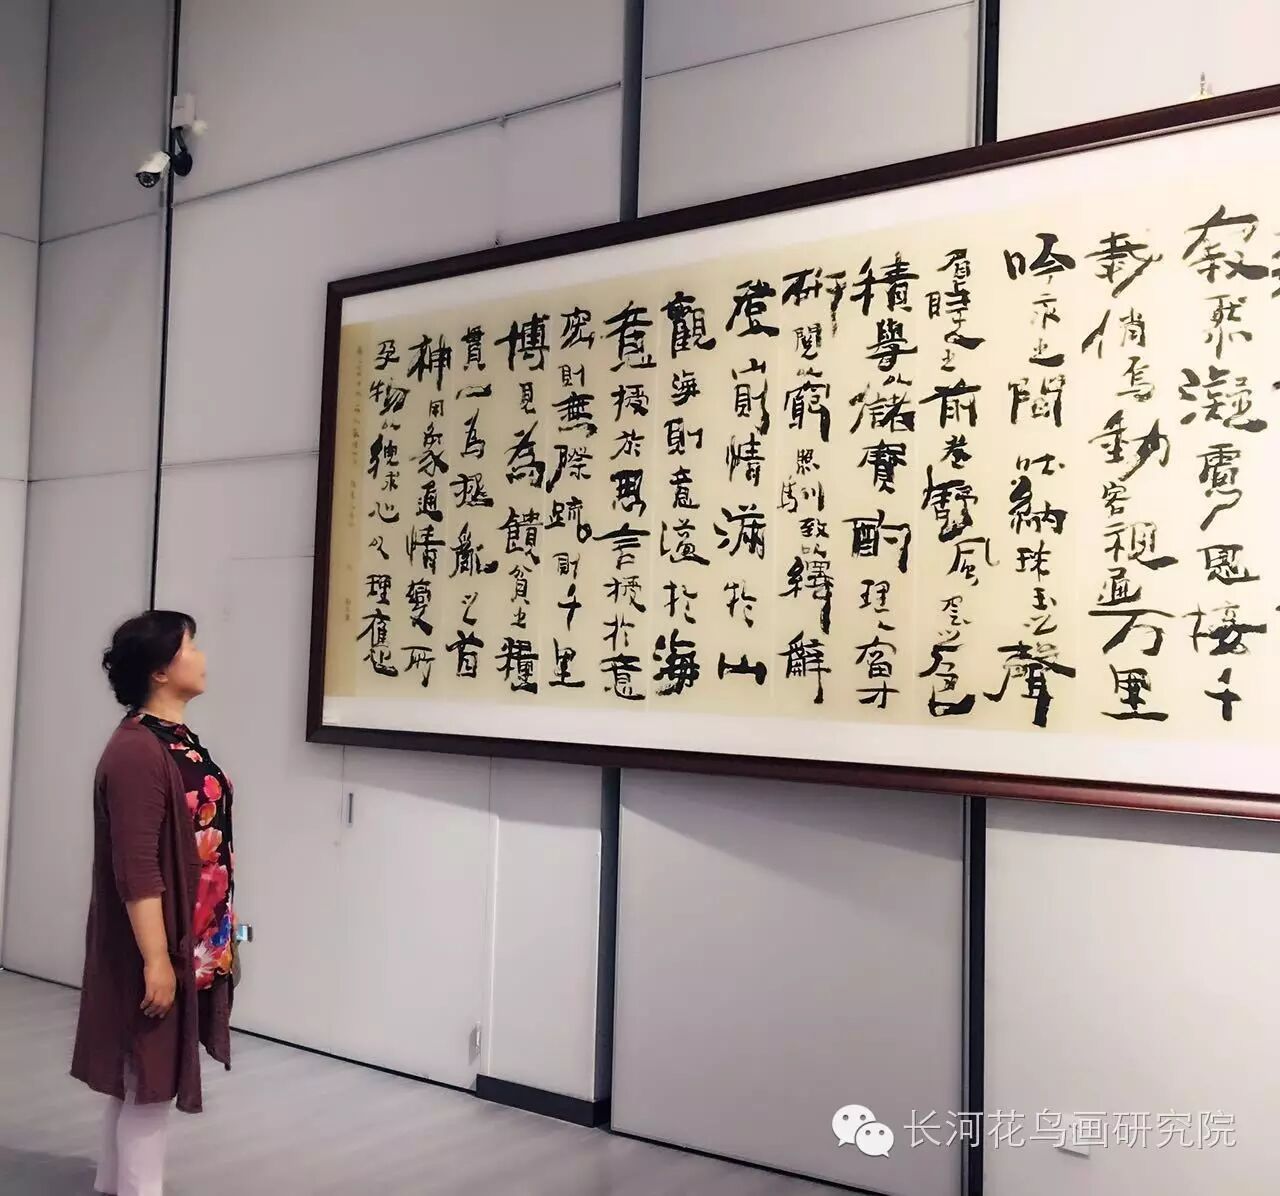 寂然凝慮思接千
載悄焉動容視通万里
吟永之間吐納珠玉之聲
眉睫之前卷舒風雲之色
積學以儲寶酌理以富才
研閱以窮照馴致以繹辭
登山則情滿於山
觀海則意溢於海
意授於思言授於意
密則無際疏則千里
博見為饋貧之糧
貫一為拯亂之
神用象通情變所
孕物以貌求心以理應
长河花鸟画研究院